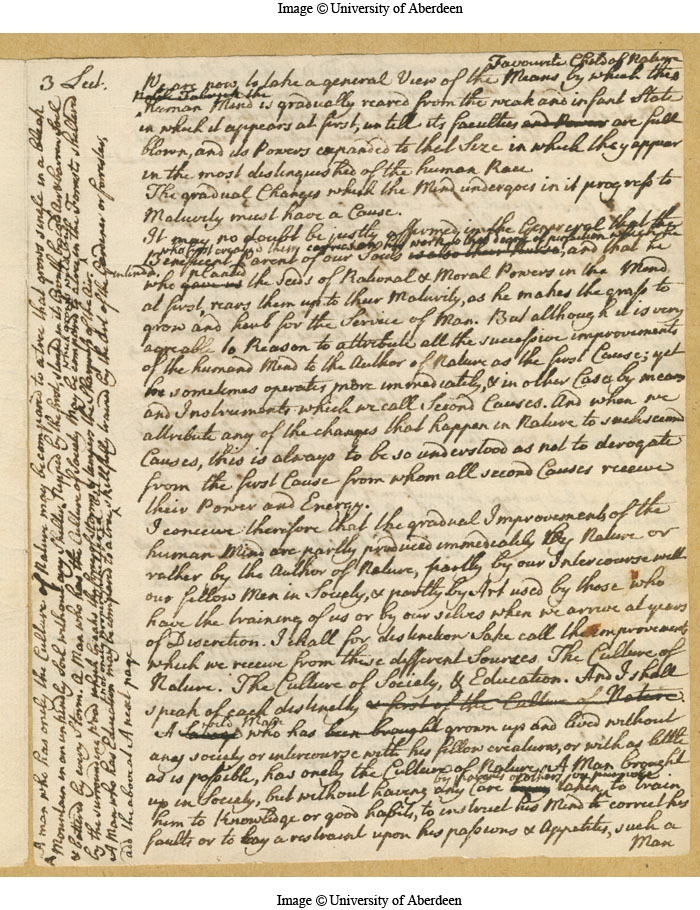 Image © University of Aberdeen
3 Lect.
Favourite Child of Nature
We are now to take a general View of the Means by which the
Human Mind is gradually reared from the weak and infant State
in which it appears at first, untill its faculties and Powers are full
blown, and its Powers expanded to that Size in which they appear
in the most distinguished of the human Race
The gradual Changes which the Mind undergoes in it progress to
Maturity must have a Cause.
It may no doubt be justly affirmed in the General that the
who first created them
beneficent Parent of our Souls is also their and that he
planted
who gave us the Seeds of Rational & Moral Powers in the Mind
at first, rears them up to their Maturity, as he makes the grass to
grow and herb for the Service of Man. But although it is very
agreable to Reason to attribute all the successive improvements
of the humand Mind to the Author of Nature as the first Cause; yet
he sometimes operates more immediately, & in other Cases by means
and Instruments which we call Second Causes. And when we
attribute any of the changes that happen in Nature to such second
Causes, this is always to be so understood as not to derogate
from the first Cause from whom all second Causes receive
their Power and Energy.
I conceive therefore that the gradual Improvements of the
human Mind are partly produced immediately by Nature or
rather by the Author of Nature, partly by our Intercourse with
our fellow Men in Society, & partly by Art used by those who
have the training of us or by our selves when we arrive at years
of Discretion. I shall for distinction Sake call the improvements
which we receive from these different Sources. The Culture of
Nature. The Culture of Society, & Education. And I shall
speak of each distinctly & first of the Culture of Nature
wild Man
A Savage who has been brought grown up and lived without
any society or intercourse with his fellow creatures, or with as little
as is possible, has onely the Culture of Nature. A Man brought
by himself or others on purpose
up in Society, but without having any Care taken to train
them to Knowledge or good habits, to instruct his Mind to correct his
faults or to lay a restraint upon his passions & Appetites, such a
Man
A man who has onely the Culture of Nature may be compard to a tree that grows single in a bleak
Mountain in an unkindly Soil without any Shelter, Nipped by the frost, stunted in its Growth
& battered by every Storm. a Man who has the Culture of Society may be compared to a tree in the Forrest, Shelterd
by the surrounding wood which breaks the force of Storms & tempers the Sharpness of the Air
A Man who has Education may be compared to a tree skillfully traind by the Art of the Gardiner or forrester,
add the above at A next page
Image © University of Aberdeen